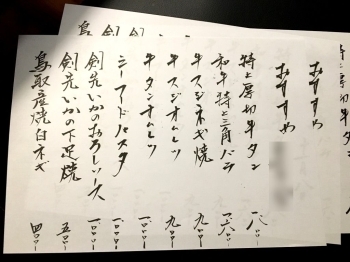 おすすめ
おすすめ
特上厚切牛タン 一八〇〇
和牛特上三角バラ 一六〇〇
牛スジネギ焼 九〇〇
牛スジオムレツ 九〇〇
牛タンオムレツ 一〇〇〇
シーフードパスタ 一〇〇〇
剣先いかのおろしソース 一〇〇〇
剣先いかの下足焼 五〇〇
鳥取産焼白ネギ 四〇〇